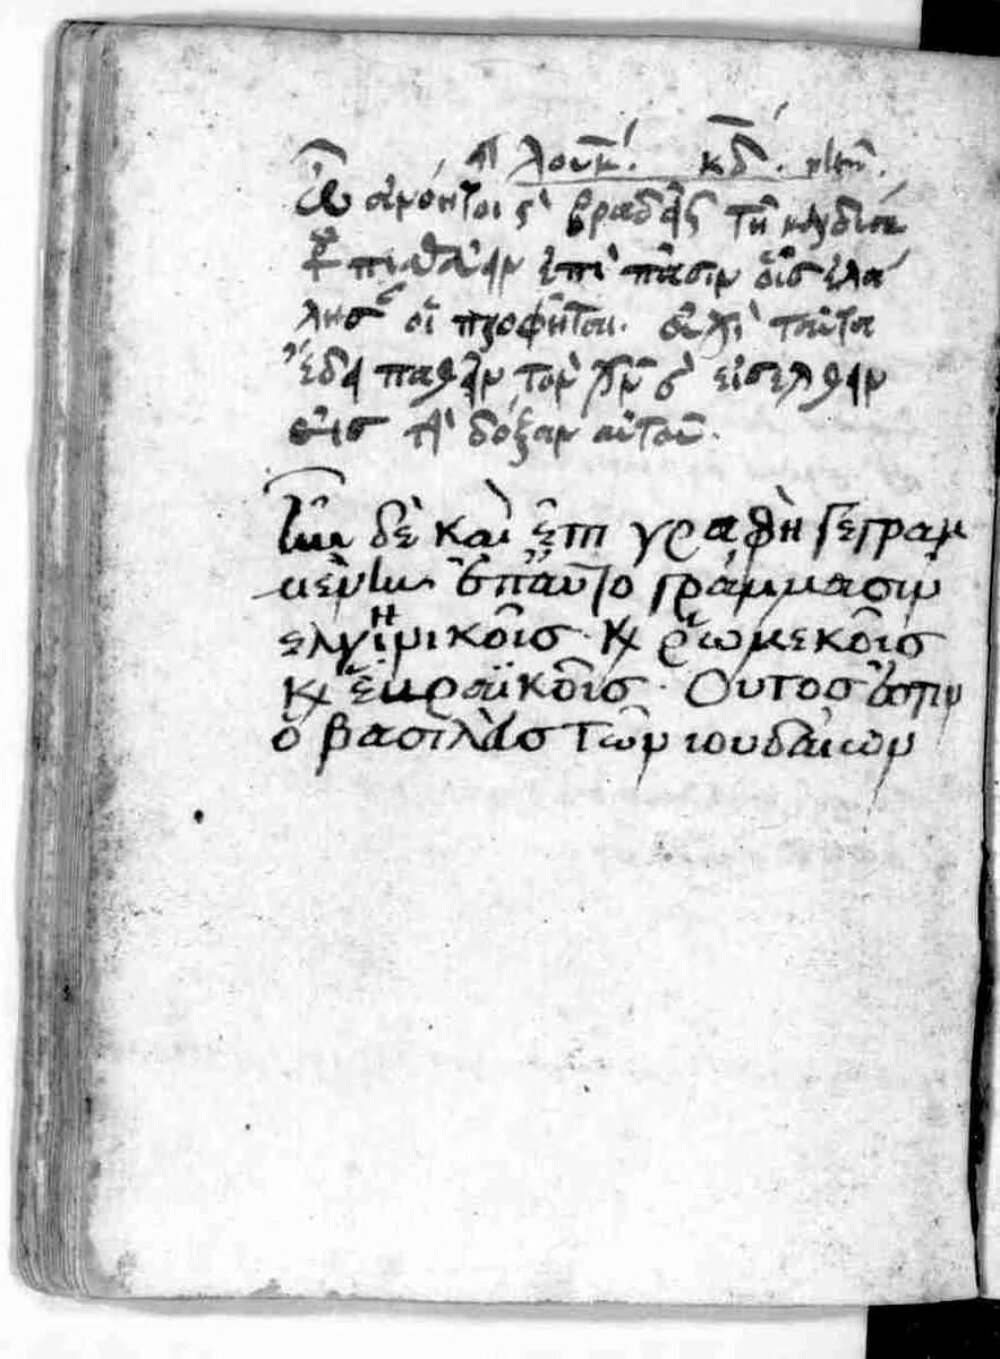 λουκ. κδ.
Ὦ ἀνόητοι κ̀ βραδεῖς τῆ καρδία
τοῦ πιστεύειν ἐπὶ πᾶσιν οἷς ἐλά
λησ οἱ προφῆται. οὐχὶ ταῦτα
ἔδει παθεῖν τὸν χν κ̀ εἰσελθεῖν
εἰς τὴν δόξαν αὐτοῦ.
Ἦν δὲ καὶ ἐπιγραφὴ γεγραμ
μένη ἐπαὐτο γράμμασιν
ελληνικοῖς κ ῥωμεκοῖς
κ ἑβραϊκοῖς. Ουτος ἐστιν
ὁ βασιλεὺς τῶν ιουδαίων